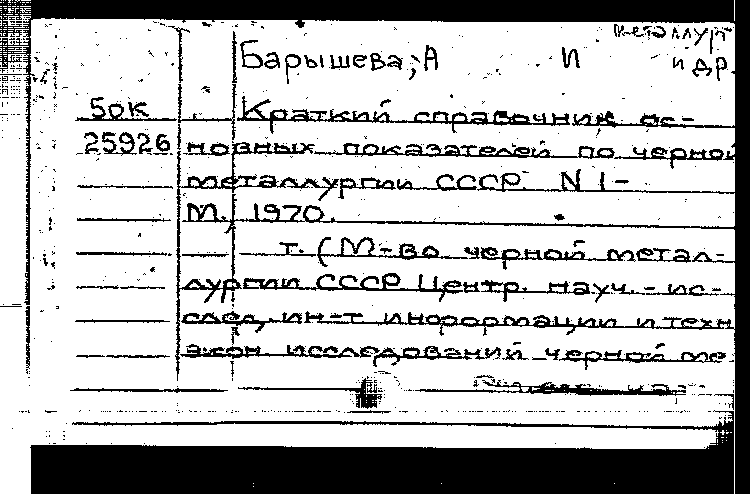 металлург
Барышева, А И и др.
50к Краткий справочник ос-
25926 новных показателей по черной
металлургии СССР. N 1-
М., 1970.
т. (М-во черной метал-
лургии СССР Центр. науч.-ис-
след. ин-т информации и техн
экон исследований черной ме